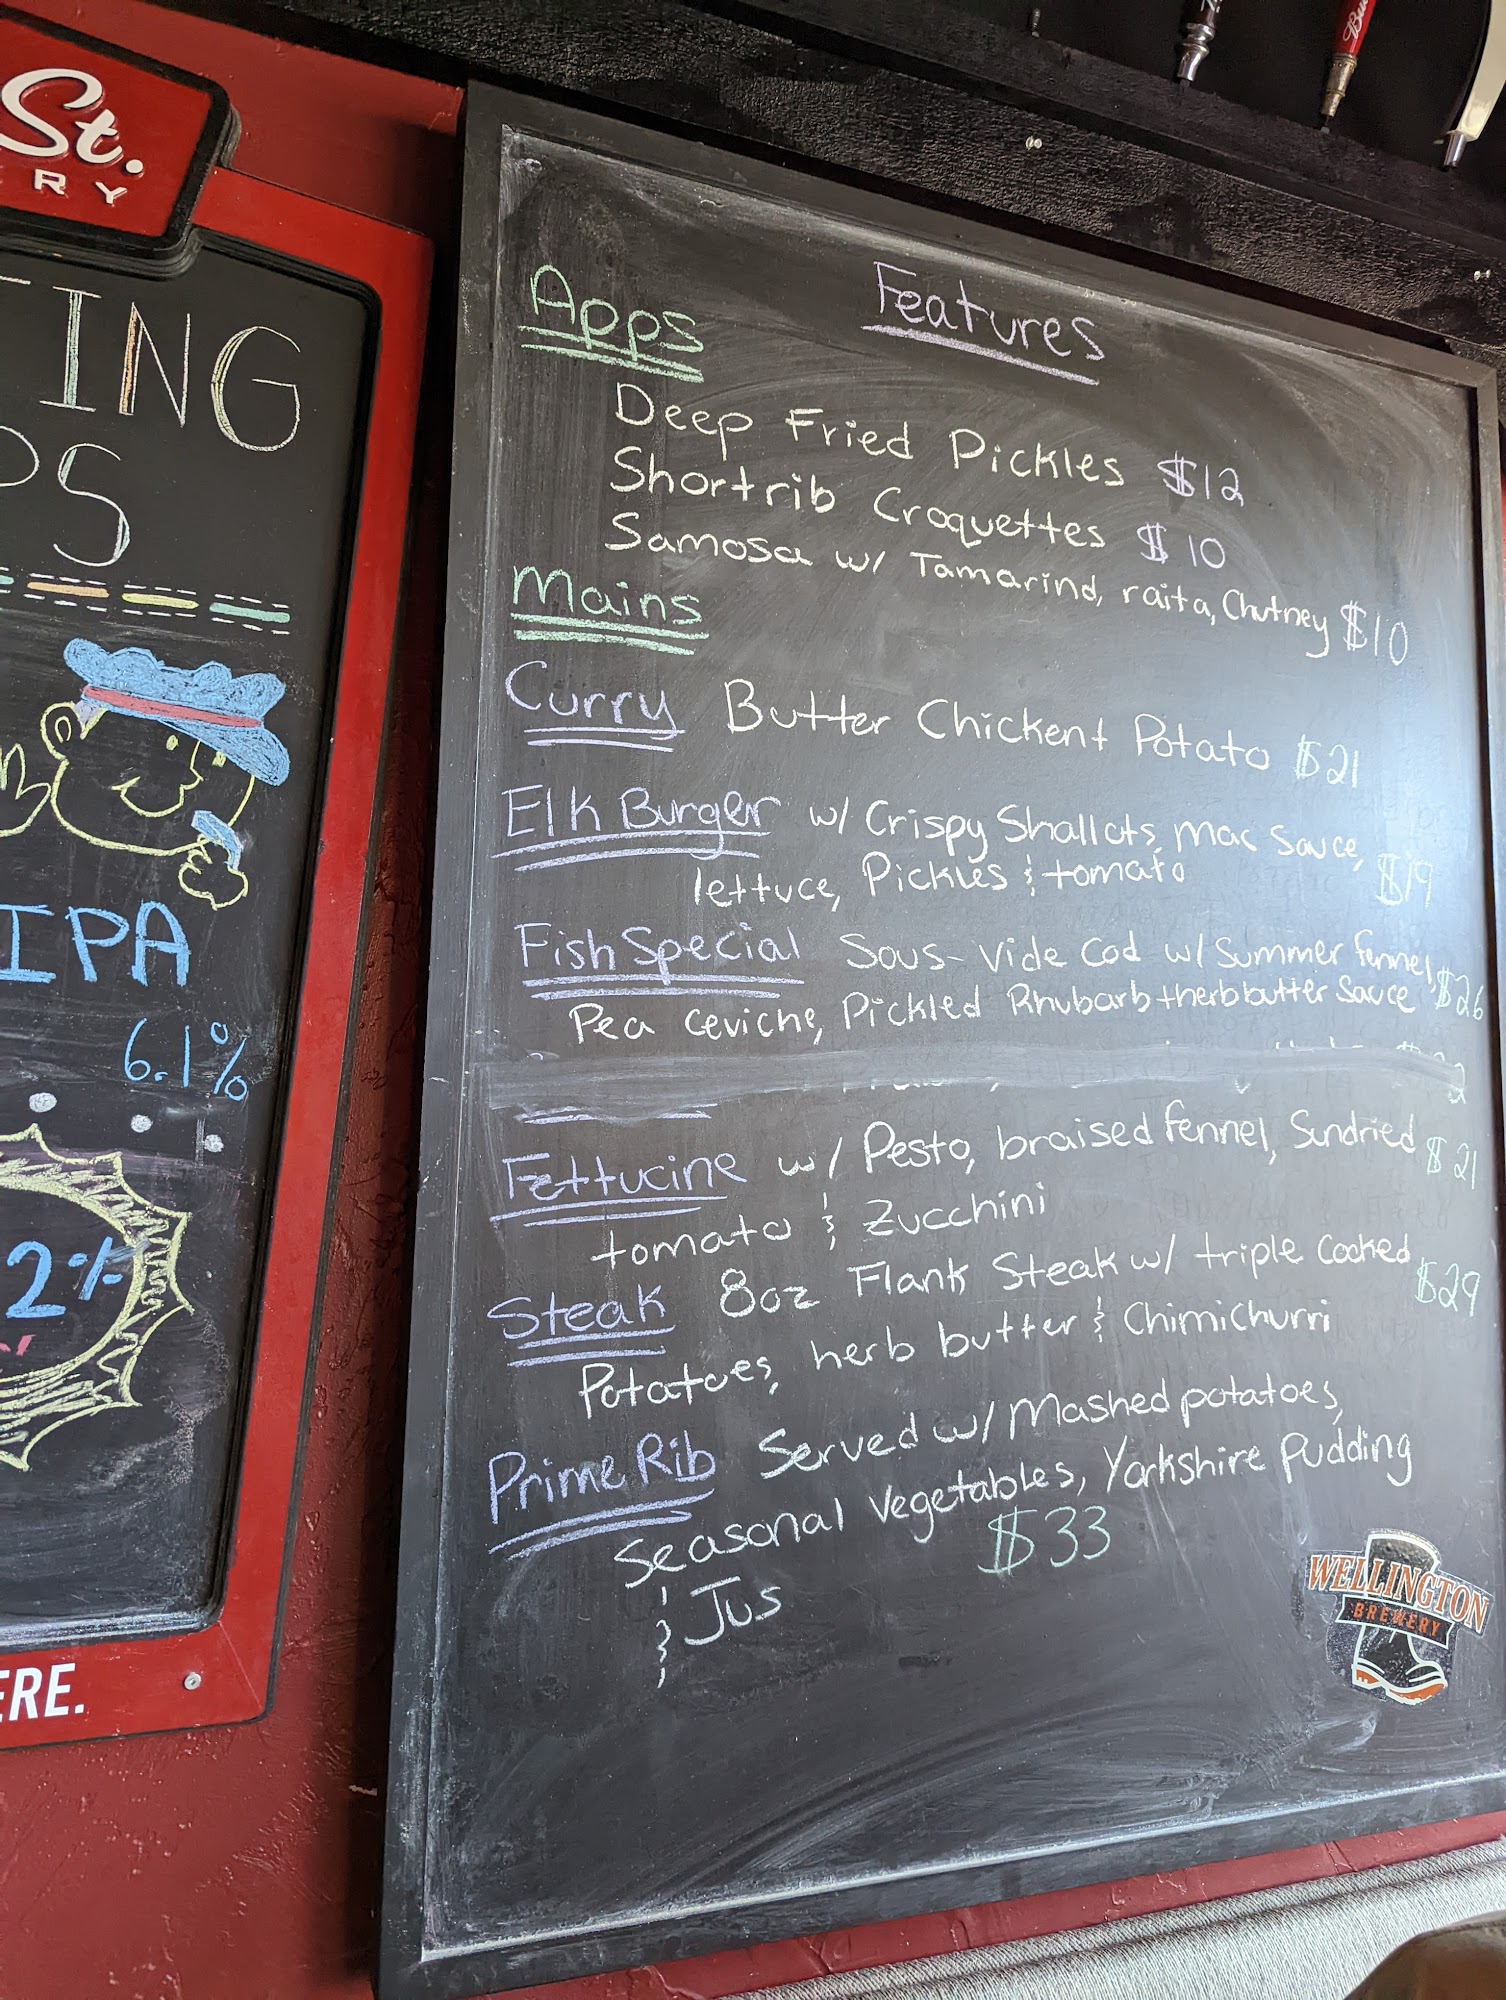 St.
RY
TING
PS
IPA
6.1%
2%
ERE.
Features
Apps
Deep Fried Pickles $12
Shortrib Croquettes $10
Samosa w/ Tamarind, raita, Chutney $10
Mains
Curry Butter Chicken + Potato $21
Elk Burger w/ Crispy Shallots, Mac Sauce,
lettuce, Pickles & tomato $19
Fish Special Sous-Vide Cod w/ Summer fennel, $26
Pea Ceviche, Pickled Rhubarb + herb butter Sauce
Fettucine w/ Pesto, braised fennel, Sundried $21
tomato & Zucchini
Steak 8oz Flank Steak w/ triple cooked $29
Potatoes, herb butter & Chimichurri
Prime Rib Served w/ Mashed potatoes,
Seasonal Vegetables, Yorkshire Pudding
& Jus $33
WELLINGTON
BREWERY